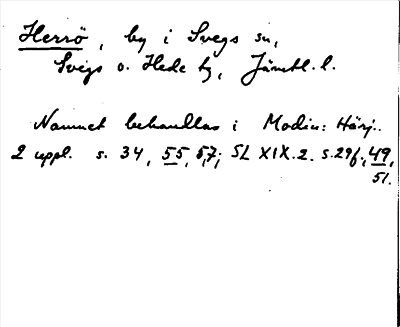 Herrö, by i Svegs sn,
Svegs o. Hede tg, Jämtl. l.
Namnet behandlas i Modin: Härj..
2 uppl. s. 34, 55, 57; SL XIX.2. s.29f., 49,
51.